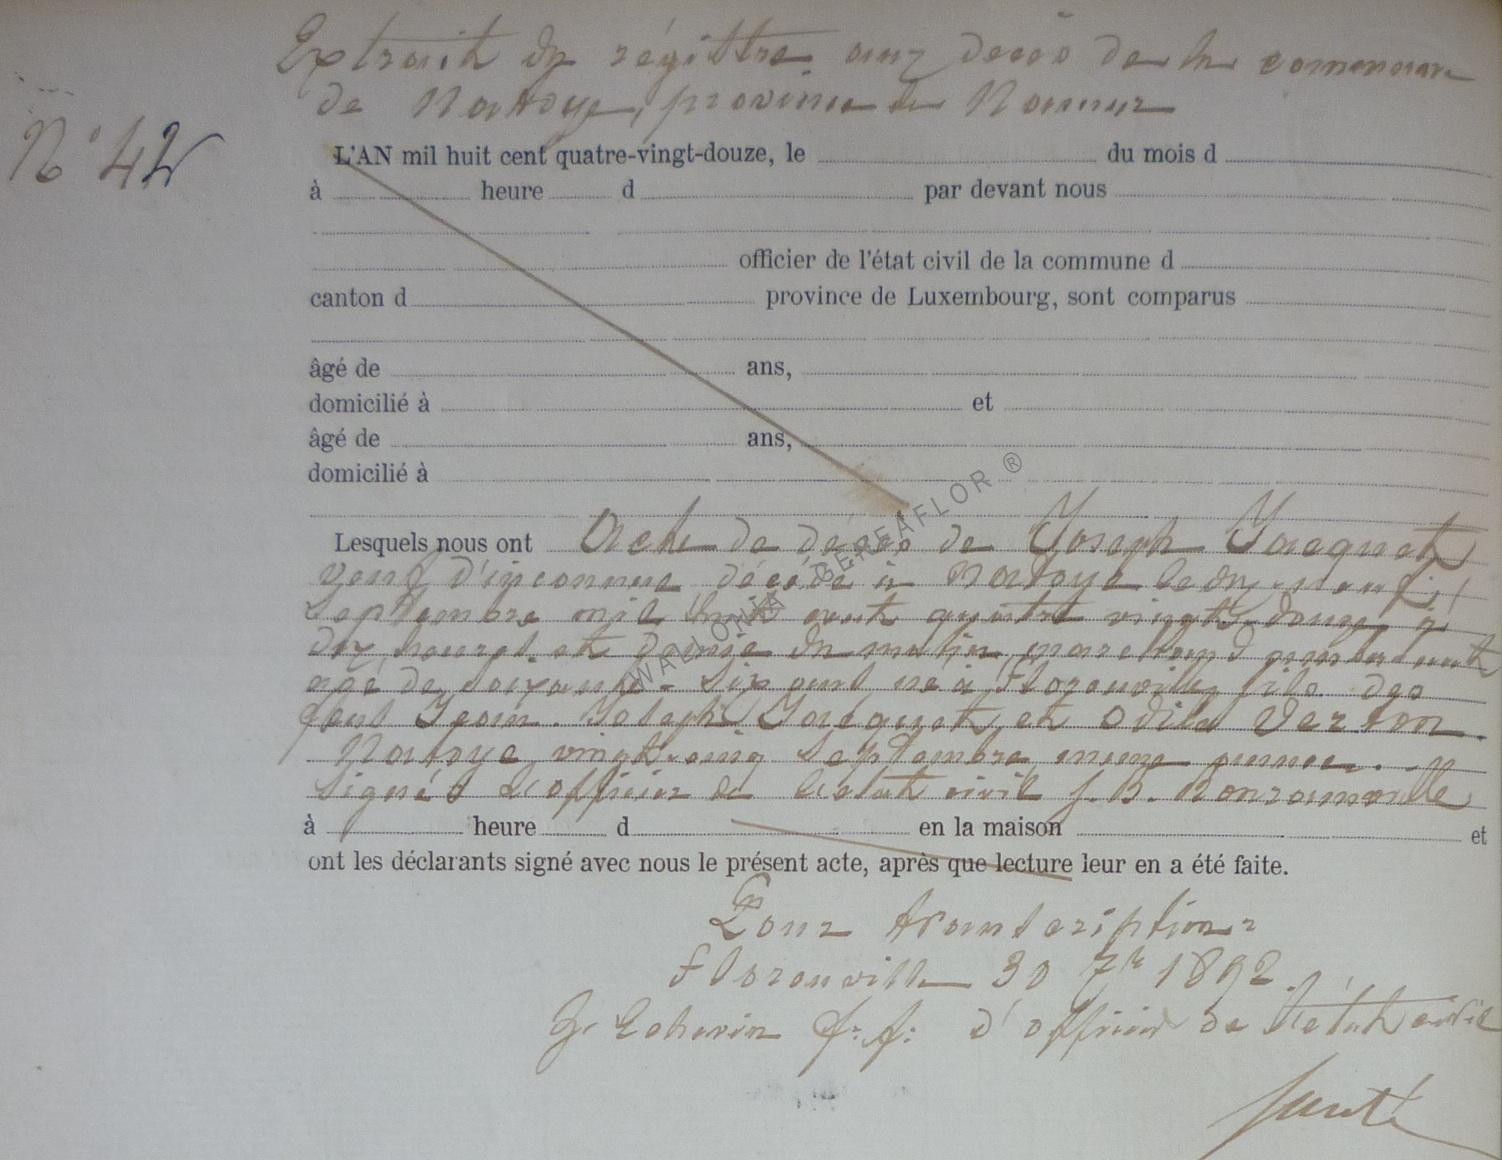 Extrait du régistre aux décès de la commune
de Natoye, province de Namur
N° 42
L'AN mil huit cent quatre-vingt-douze, le du mois d
à heure d par devant nous
officier de l'état civil de la commune d
canton d province de Luxembourg, sont comparus
âgé de ans,
domicilié à et
âgé de ans,
domicilié à
WALLONIA GEREAFLOR ®
Lesquels nous ont Acte de décès de Joseph Jacquet
veuf d'inconnue décédé à Natoye le dix neuf
Septembre mil huit cent quatre vingt douze à
dix heures et demie du matin, marchand ambulant
agé de soixante-six ans né à Florenville, fils des
feus Jean-Joseph Jacquet, et Odile
Natoye vingt cinq Septembre même année.
Signés L'officier de l'état civil J. B.
à heure d en la maison et
ont les déclarants signé avec nous le présent acte, après que lecture leur en a été faite.
Pour transcription
Florenville 30 7bre 1892.
Echevin f.f. d'officier de l'état civil